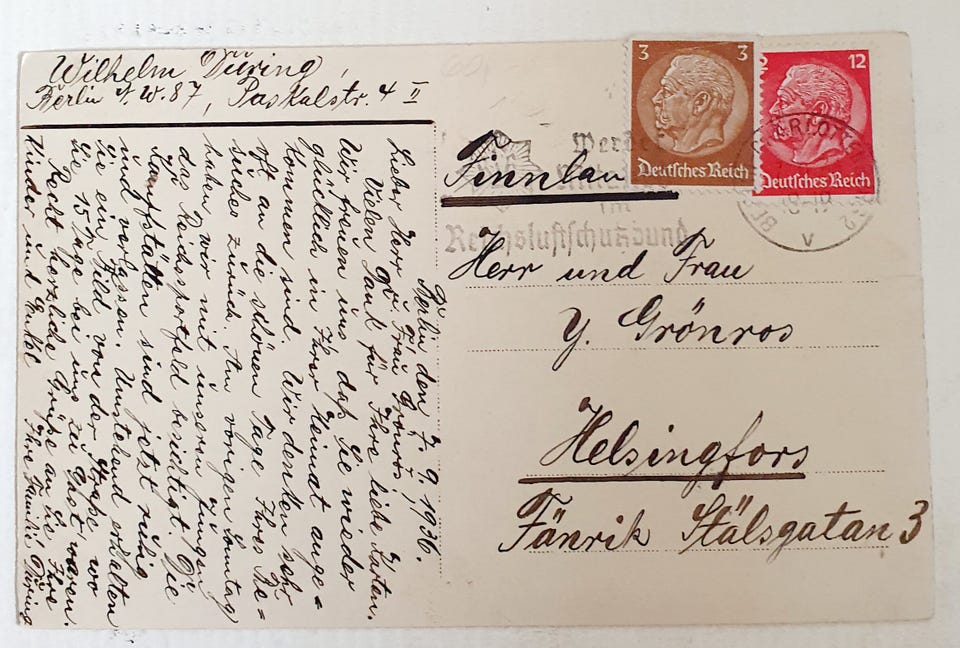 Wilhelm Düring,
Berlin N.W.87, Paskalstr. 4 II
3 3
Deutsches Reich
12
Deutsches Reich
Finnlan
im
Reichsluftschutzbund
BERLIN
18-19
V
Herr und Frau
Y. Grönros
Helsingfors
Fänrik Stålsgatan 3
Berlin den 7.9.1936.
Lieber Herr u. Frau Grönros!
Vielen Dank für Ihre liebe Karten.
Wir freuen uns, daß Sie wieder
glücklich in Ihrer Heimat ange=
kommen sind. Wir denken sehr
oft an die schönen Tage Ihres Be=
suches zurück. Am vorigen Sonntag
haben wir mit unseren Jungen
das Reichssportfeld besichtigt. Die
Kampfstätten sind jetzt ruhig
und verlassen. Umstehend erhalten
Sie ein Bild von der Straße, wo
Sie 15 Tage bei uns zu Gast waren.
Recht herzliche Grüße an Sie, Ihre
Kinder und Enkel Ihre Familie Düring